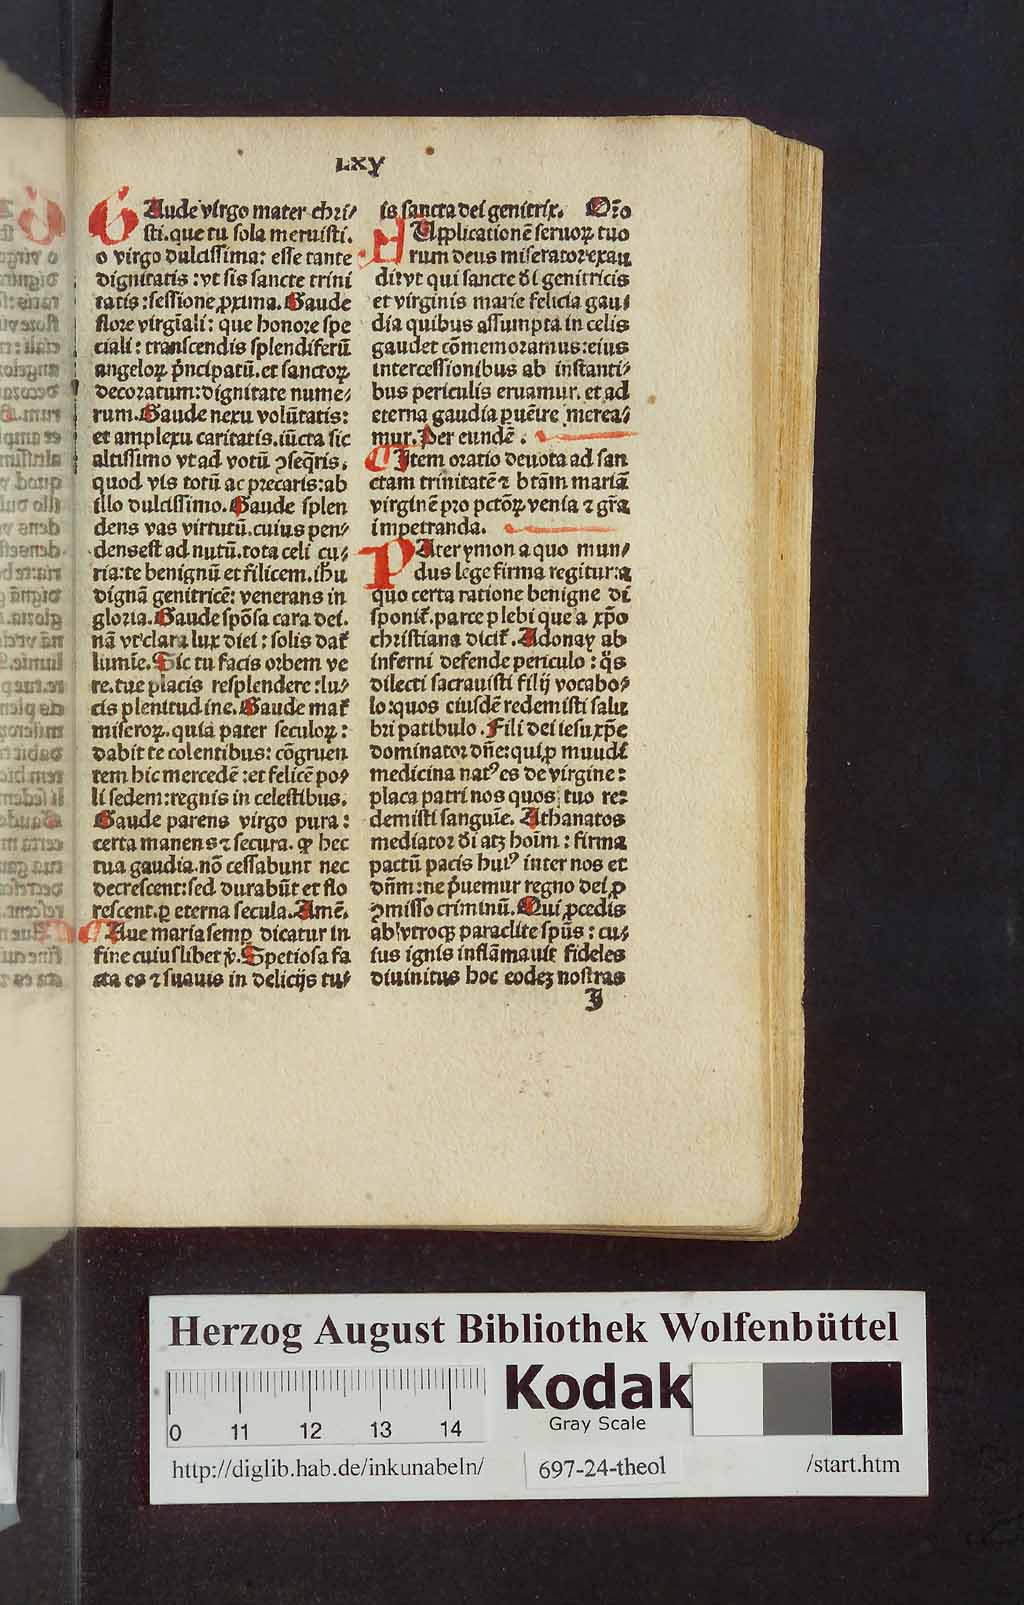 LXV
GAude virgo mater chri/
sti. que tu sola meruisti.
o virgo dulcissima: esse tante
dignitatis: vt sis sancte trini
tatis: sessione ꝓxima. Gaude
flore virgīali: que honore spe
ciali: transcendis splendiferū
angeloꝝ pͥncipatū. et sanctoꝝ
decoratum: dignitate nume/
rum. Gaude nexu volūtatis:
et amplexu caritatis. iūcta sic
altissimo vt ad votū ꝯseq̄ris.
quod vis totū ac precaris: ab
illo dulcissimo. Gaude splen
dens vas virtutū. cuius pen/
dens est ad nutū. tota celi cu/
ria: te benignū et filicem. ihū
dignā genitricē: venerans in
gloria. Gaude spōsa cara dei.
nā vt clara lux diei: solis dat᷑
lumīe. Sic tu facis orbem ve
re. tue placis resplendere: lu/
cis plenitudine. Gaude mat᷑
miseroꝝ. quia pater seculoꝝ:
dabit te colentibus: cōgruen
tem hic mercedē: et felicē po/
li sedem: regnis in celestibus.
Gaude parens virgo pura:
certa manens ⁊ secura. ꝙ hec
tua gaudia. nō cessabunt nec
decrescent: sed durabūt et flo
rescent. ꝑ eterna secula. Amē.
Aue maria semꝑ dicatur in
fine cuiuslibet ꝟ. Speciosa fa
cta es ⁊ suauis in delicijs tu/
is sancta dei genitrix. Oro
SUpplicationē seruoꝝ tuo
rum deus miserator exau
di: vt qui sancte dͥi genitricis
et virginis marie felicia gau/
dia quibus assumpta in celis
gaudet cōmemoramus: eius
intercessionibus ab instanti/
bus periculis eruamur. et ad
eterna gaudia ꝑuēire merea/
mur. Per eundē.
Item oratio deuota ad san
ctam trinitatē ⁊ btām mariā
virginē pro pctōꝝ venia ⁊ gr̄a
impetranda.
PAter ymon a quo mun/
dus lege firma regitur: a
quo certa ratione benigne di
sponit᷑. parce plebi que a xp̄o
christiana dicit᷑. Adonay ab
inferni defende periculo: q̊s
dilecti sacrauisti filij vocabo/
lo: quos eiusdē redemisti salu
bri patibulo. Fili dei iesu xp̄e
dominator dn̄e: qui ꝓ muudi
medicina natꝰ es de virgine:
placa patri nos quos tuo re:
demisti sanguīe. Athanatos
mediator dͥi atꝫ hoīm: firma
pactū pacis huiꝰ inter nos et
dn̄m: ne pͥuemur regno dei ꝓ
ꝯmisso criminū. Qui ꝓcedis
ab vtroqꝫ paraclite spūs: cu/
ius ignis inflāmauit fideles
diuinitus hoc eodeꝫ nostras
J
Herzog August Bibliothek Wolfenbüttel
0 11 12 13 14
Kodak
Gray Scale
http://diglib.hab.de/inkunabeln/ 697-24-theol /start.htm